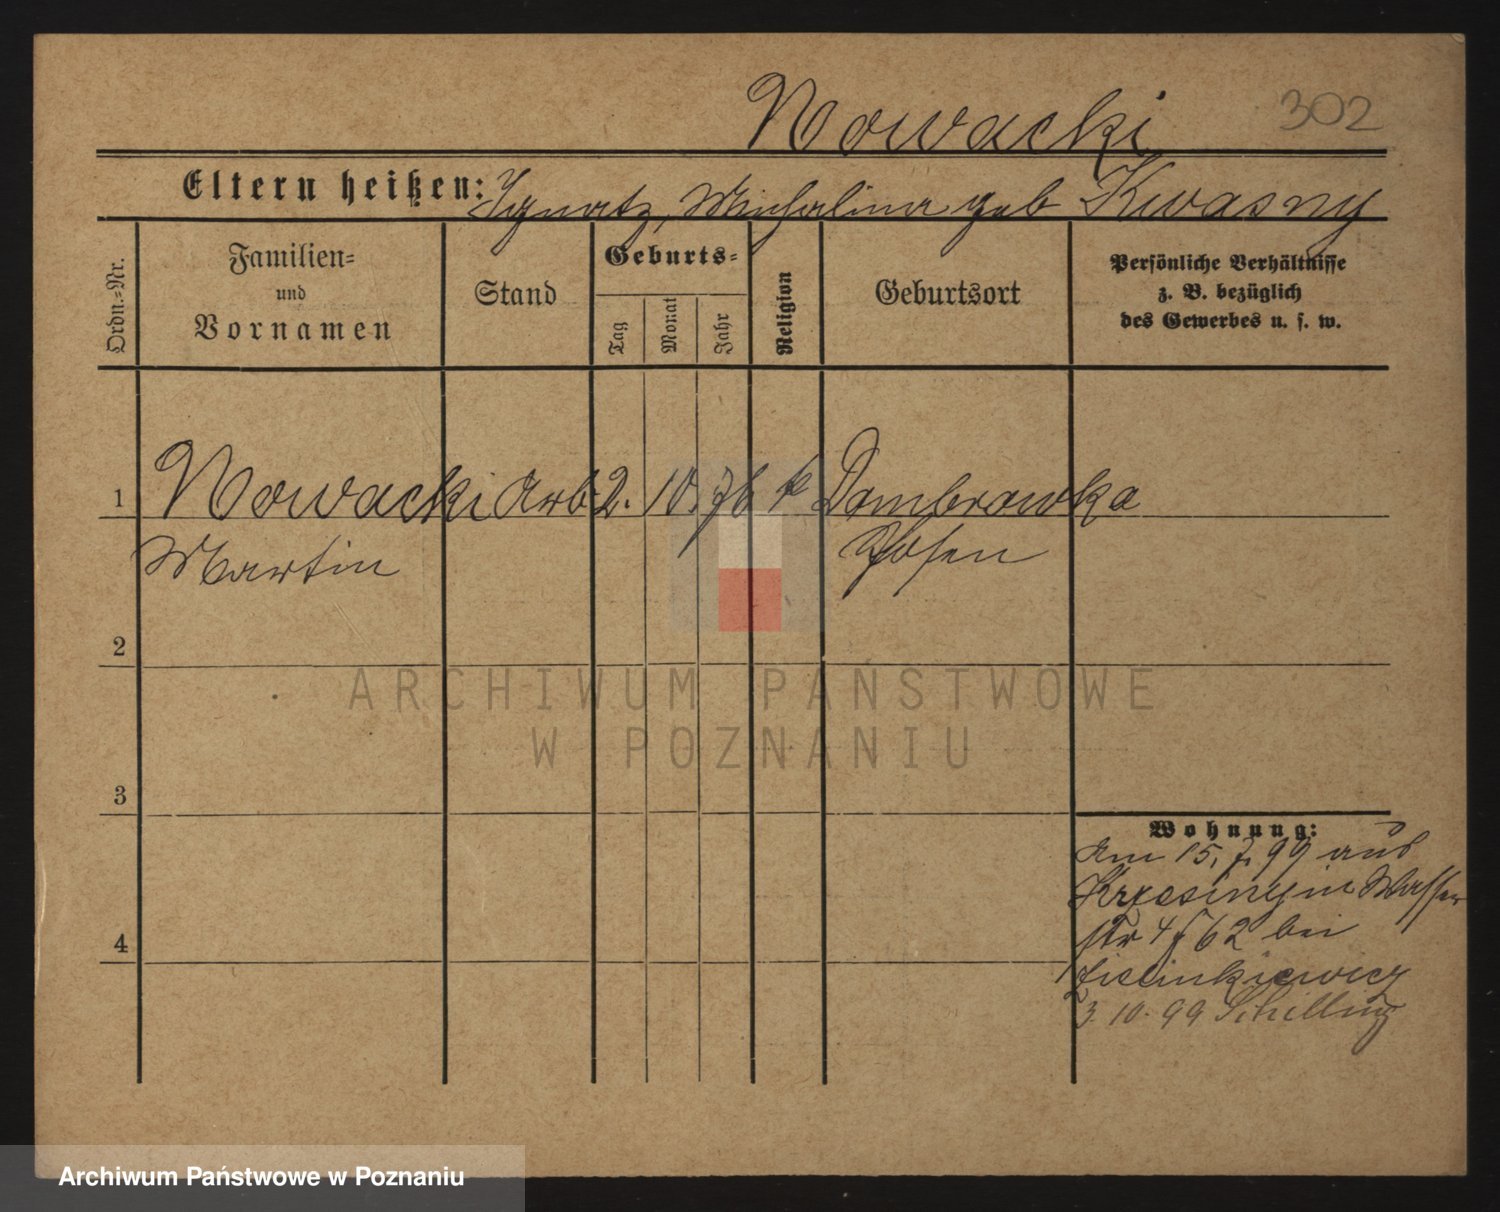 Nowacki 302
Eltern heißen: Ignatz, Michalina geb Kwasny
Ordn.=Nr.
Familien=
und
Vornamen
Stand
Geburts=
Tag
Monat
Jahr
Religion
Geburtsort
Persönliche Verhältnisse
z. B. bezüglich
des Gewerbes u. s. w.
1 Nowacki Arb. 2. 10. 76 k Dombrowka
Martin Posen
2
ARCHIWUM PAŃSTWOWE
W POZNANIU
3
Wohnung:
Am 15. 7. 99 aus
Krzesiny in Wasser
4
str 4 62 bei
Zielinkiewicz
3. 10. 99 Schilling
Archiwum Państwowe w Poznaniu